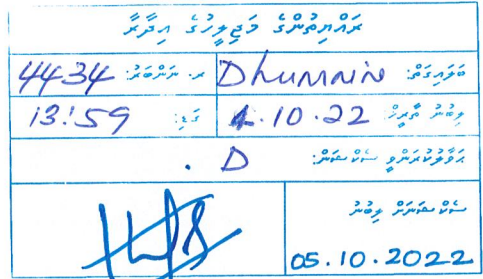 ރައްޔިތުންގެ މަޖިލީހުގެ އިދާރާ
ބަލައިގަތް: Dhumain ރ. ނަންބަރު: 4434
ލިބުނު ތާރީޚް: 4.10.22 ގަޑި: 13:59
ޙަވާލުކުރަންވީ ސެކްޝަން: D
ސެކްޝަނަށް ލިބުނު
05.10.2022